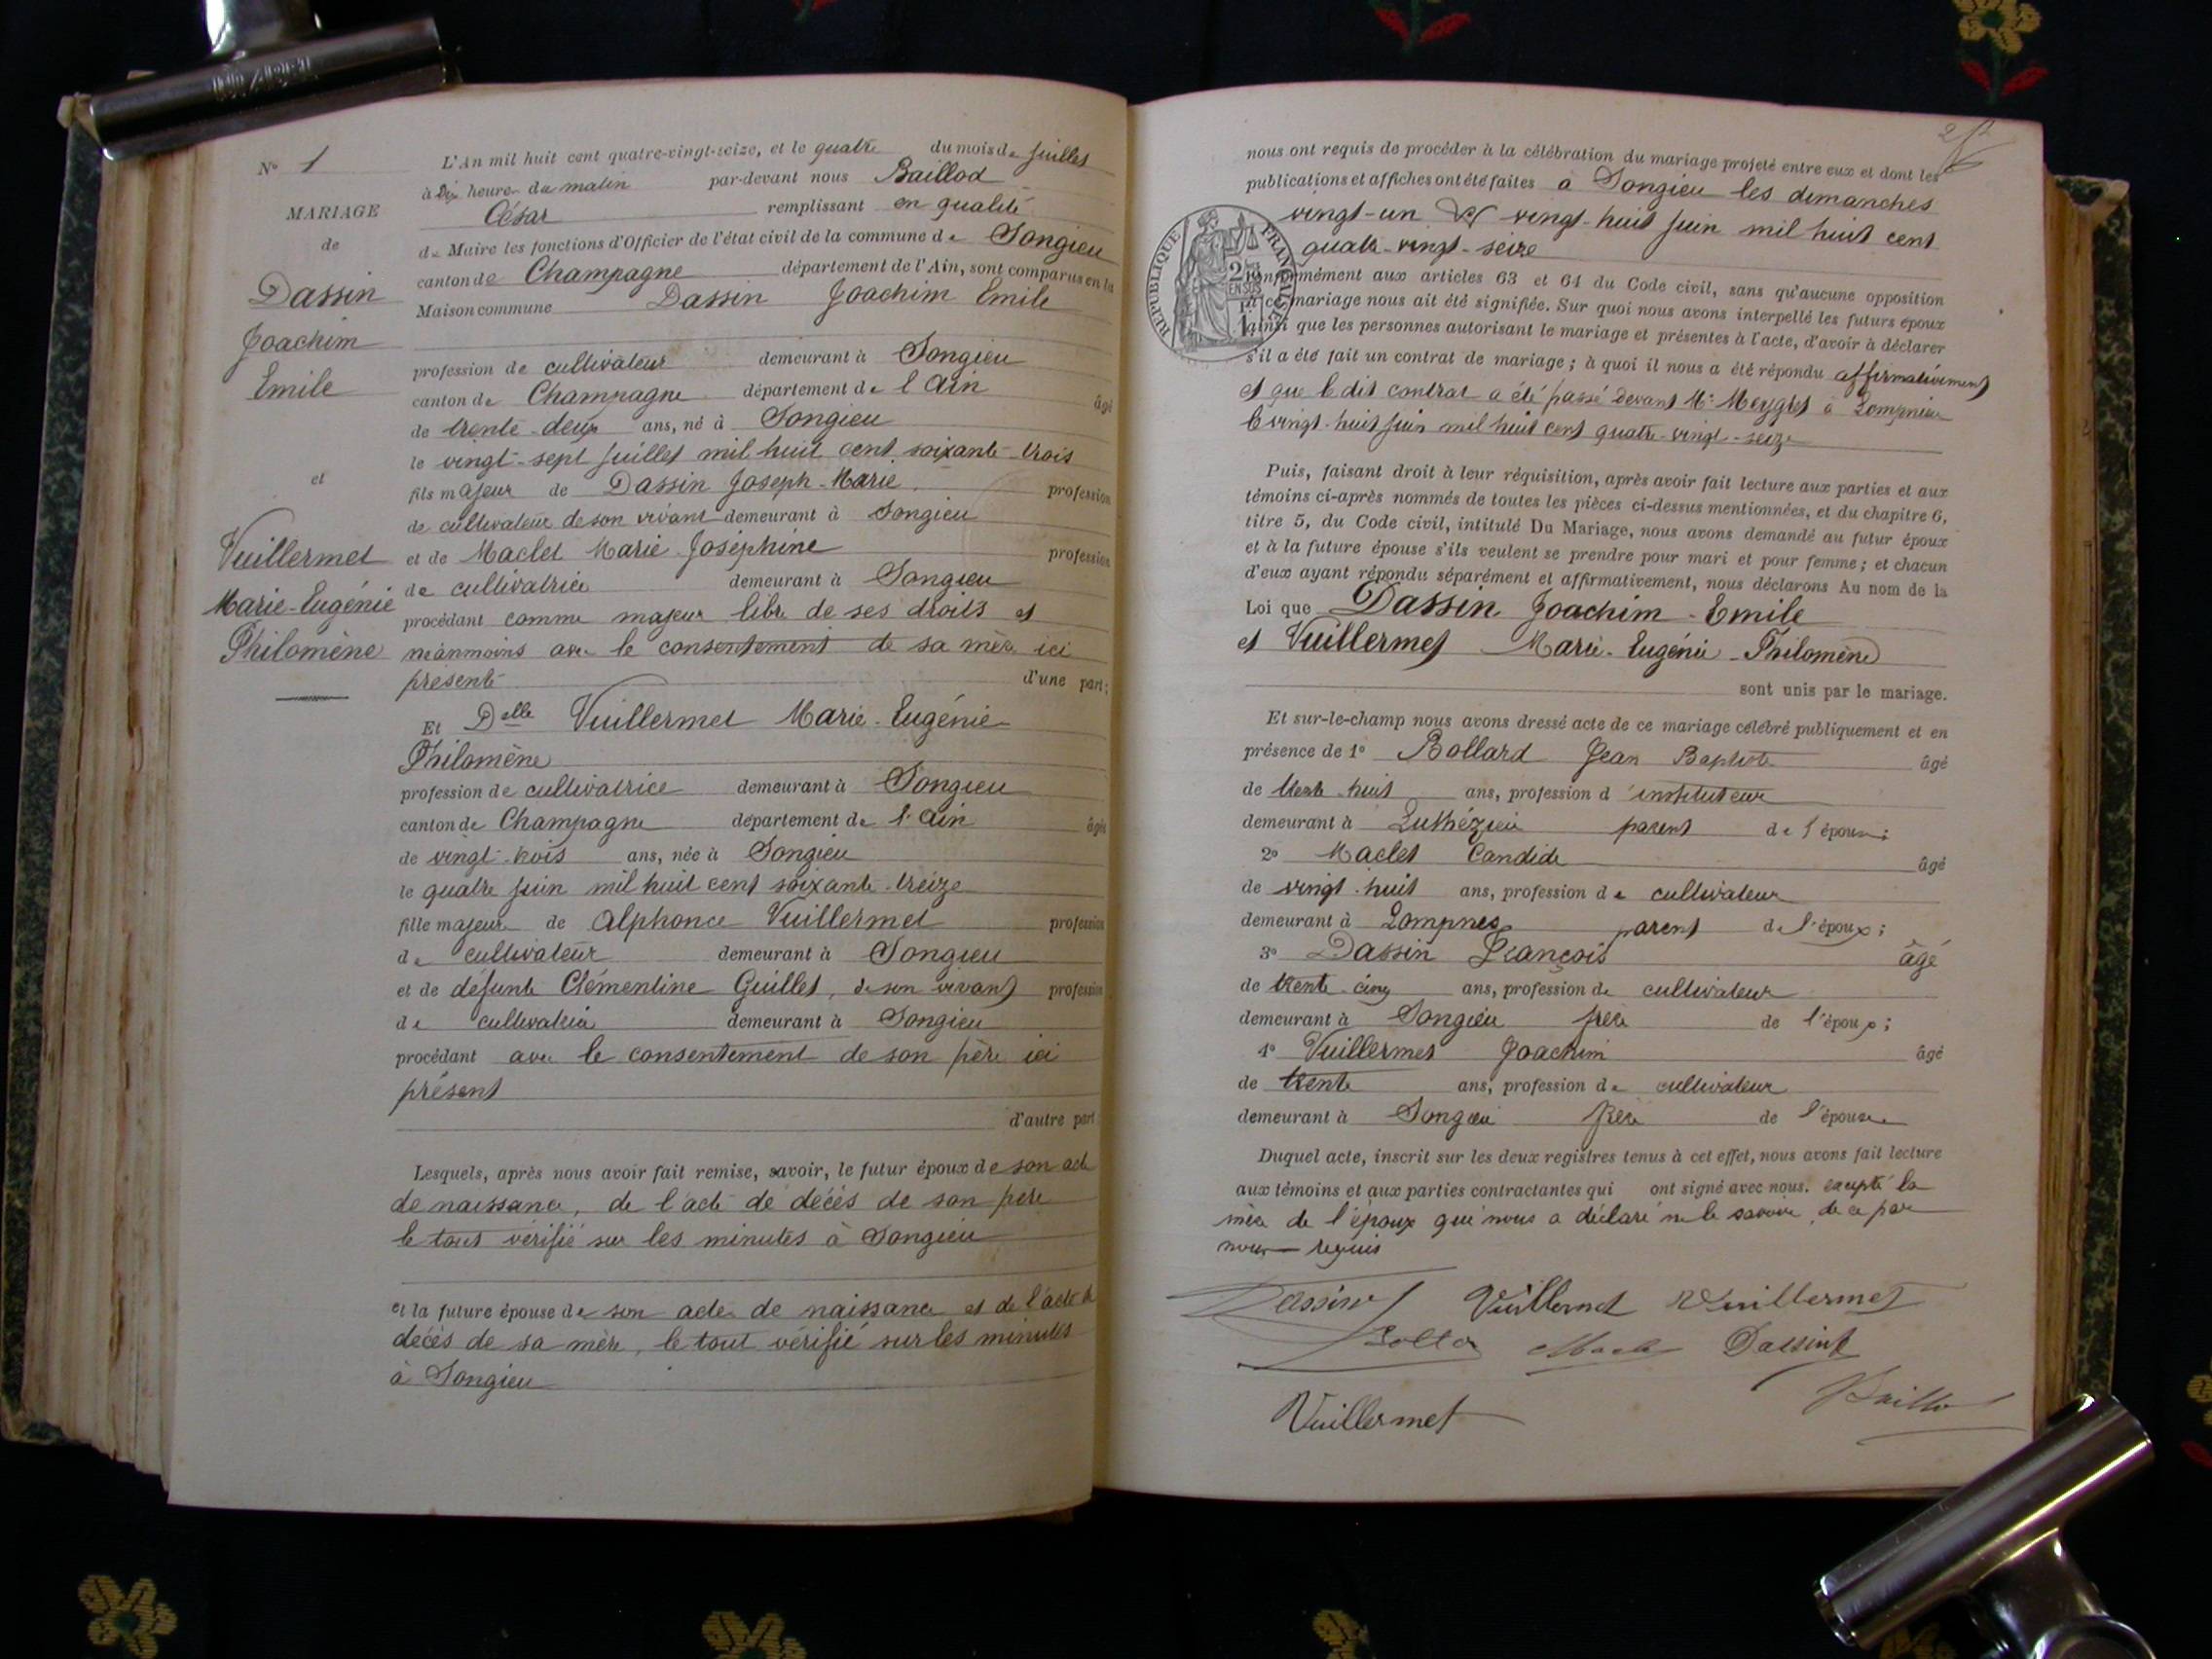 N° 1
MARIAGE
de
Dassin
Joachim
Emile
et
Vuillermet
Marie-Eugénie
Philomène
L'An mil huit cent quatre-vingt-seize, et le quatre du mois de Juillet
à Dix heure du matin par-devant nous Baillod
César remplissant en qualité
de Maire les fonctions d'Officier de l'état civil de la commune de Songieu
canton de Champagne département de l'Ain, sont comparus en la
Maison commune Dassin Joachim Emile
profession de cultivateur demeurant à Songieu
canton de Champagne département de l'Ain âgé
de trente-deux ans, né à Songieu
le vingt-sept Juillet mil huit cent soixante-trois
fils majeur de Dassin Joseph-Marie profession
de cultivateur de son vivant demeurant à Songieu
et de Maclet Marie Joséphine profession
de cultivatrice demeurant à Songieu
procédant comme majeur libre de ses droits et
néanmoins avec le consentement de sa mère ici
présente d'une part;
Et Delle Vuillermet Marie-Eugénie
Philomène
profession de cultivatrice demeurant à Songieu
canton de Champagne département de l'Ain âgée
de vingt-trois ans, née à Songieu
le quatre Juin mil huit cent soixante-treize
fille majeure de Alphonce Vuillermet profession
de cultivateur demeurant à Songieu
et de défunte Clémentine Guillet, de son vivant profession
de cultivatrice demeurant à Songieu
procédant avec le consentement de son père ici
présent
d'autre part
Lesquels, après nous avoir fait remise, savoir, le futur époux de son acte
de naissance, de l'acte de décès de son père
le tout vérifié sur les minutes à Songieu
et la future épouse de son acte de naissance et de l'acte de
décès de sa mère, le tout vérifié sur les minutes
à Songieu
nous ont requis de procéder à la célébration du mariage projeté entre eux et dont les
publications et affiches ont été faites à Songieu les dimanches
vingt-un et vingt-huit Juin mil huit cent
quatre-vingt-seize
RÉPUBLIQUE FRANÇAISE
conformément aux articles 63 et 64 du Code civil, sans qu'aucune opposition
à ce mariage nous ait été signifiée. Sur quoi nous avons interpellé les futurs époux
ainsi que les personnes autorisant le mariage et présentes à l'acte, d'avoir à déclarer
s'il a été fait un contrat de mariage; à quoi il nous a été répondu affirmativement
et que le dit contrat a été passé devant Me
le vingt-huit Juin mil huit cent quatre-vingt-seize
Puis, faisant droit à leur réquisition, après avoir fait lecture aux parties et aux
témoins ci-après nommés de toutes les pièces ci-dessus mentionnées, et du chapitre 6,
titre 5, du Code civil, intitulé Du Mariage, nous avons demandé au futur époux
et à la future épouse s'ils veulent se prendre pour mari et pour femme; et chacun
d'eux ayant répondu séparément et affirmativement, nous déclarons Au nom de la
Loi que Dassin Joachim-Emile
et Vuillermet Marie-Eugénie-Philomène
sont unis par le mariage.
Et sur-le-champ nous avons dressé acte de ce mariage célébré publiquement et en
présence de 1° Bollard Jean Baptiste âgé
de trente huit ans, profession d'instituteur
demeurant à Luthézieu parent de l'époux;
2° Maclet Candide âgé
de vingt-huit ans, profession de cultivateur
demeurant à Lompnes parent de l'époux;
3° Dassin François âgé
de trente-cinq ans, profession de cultivateur
demeurant à Songieu frère de l'époux;
4° Vuillermet Joachim âgé
de trente ans, profession de cultivateur
demeurant à Songieu frère de l'épouse
Duquel acte, inscrit sur les deux registres tenus à cet effet, nous avons fait lecture
aux témoins et aux parties contractantes qui ont signé avec nous. excepté la
mère de l'époux qui nous a déclaré ne le savoir, de ce par
nous requis
Dassin Vuillermet Vuillermet
Dassin
Vuillermet